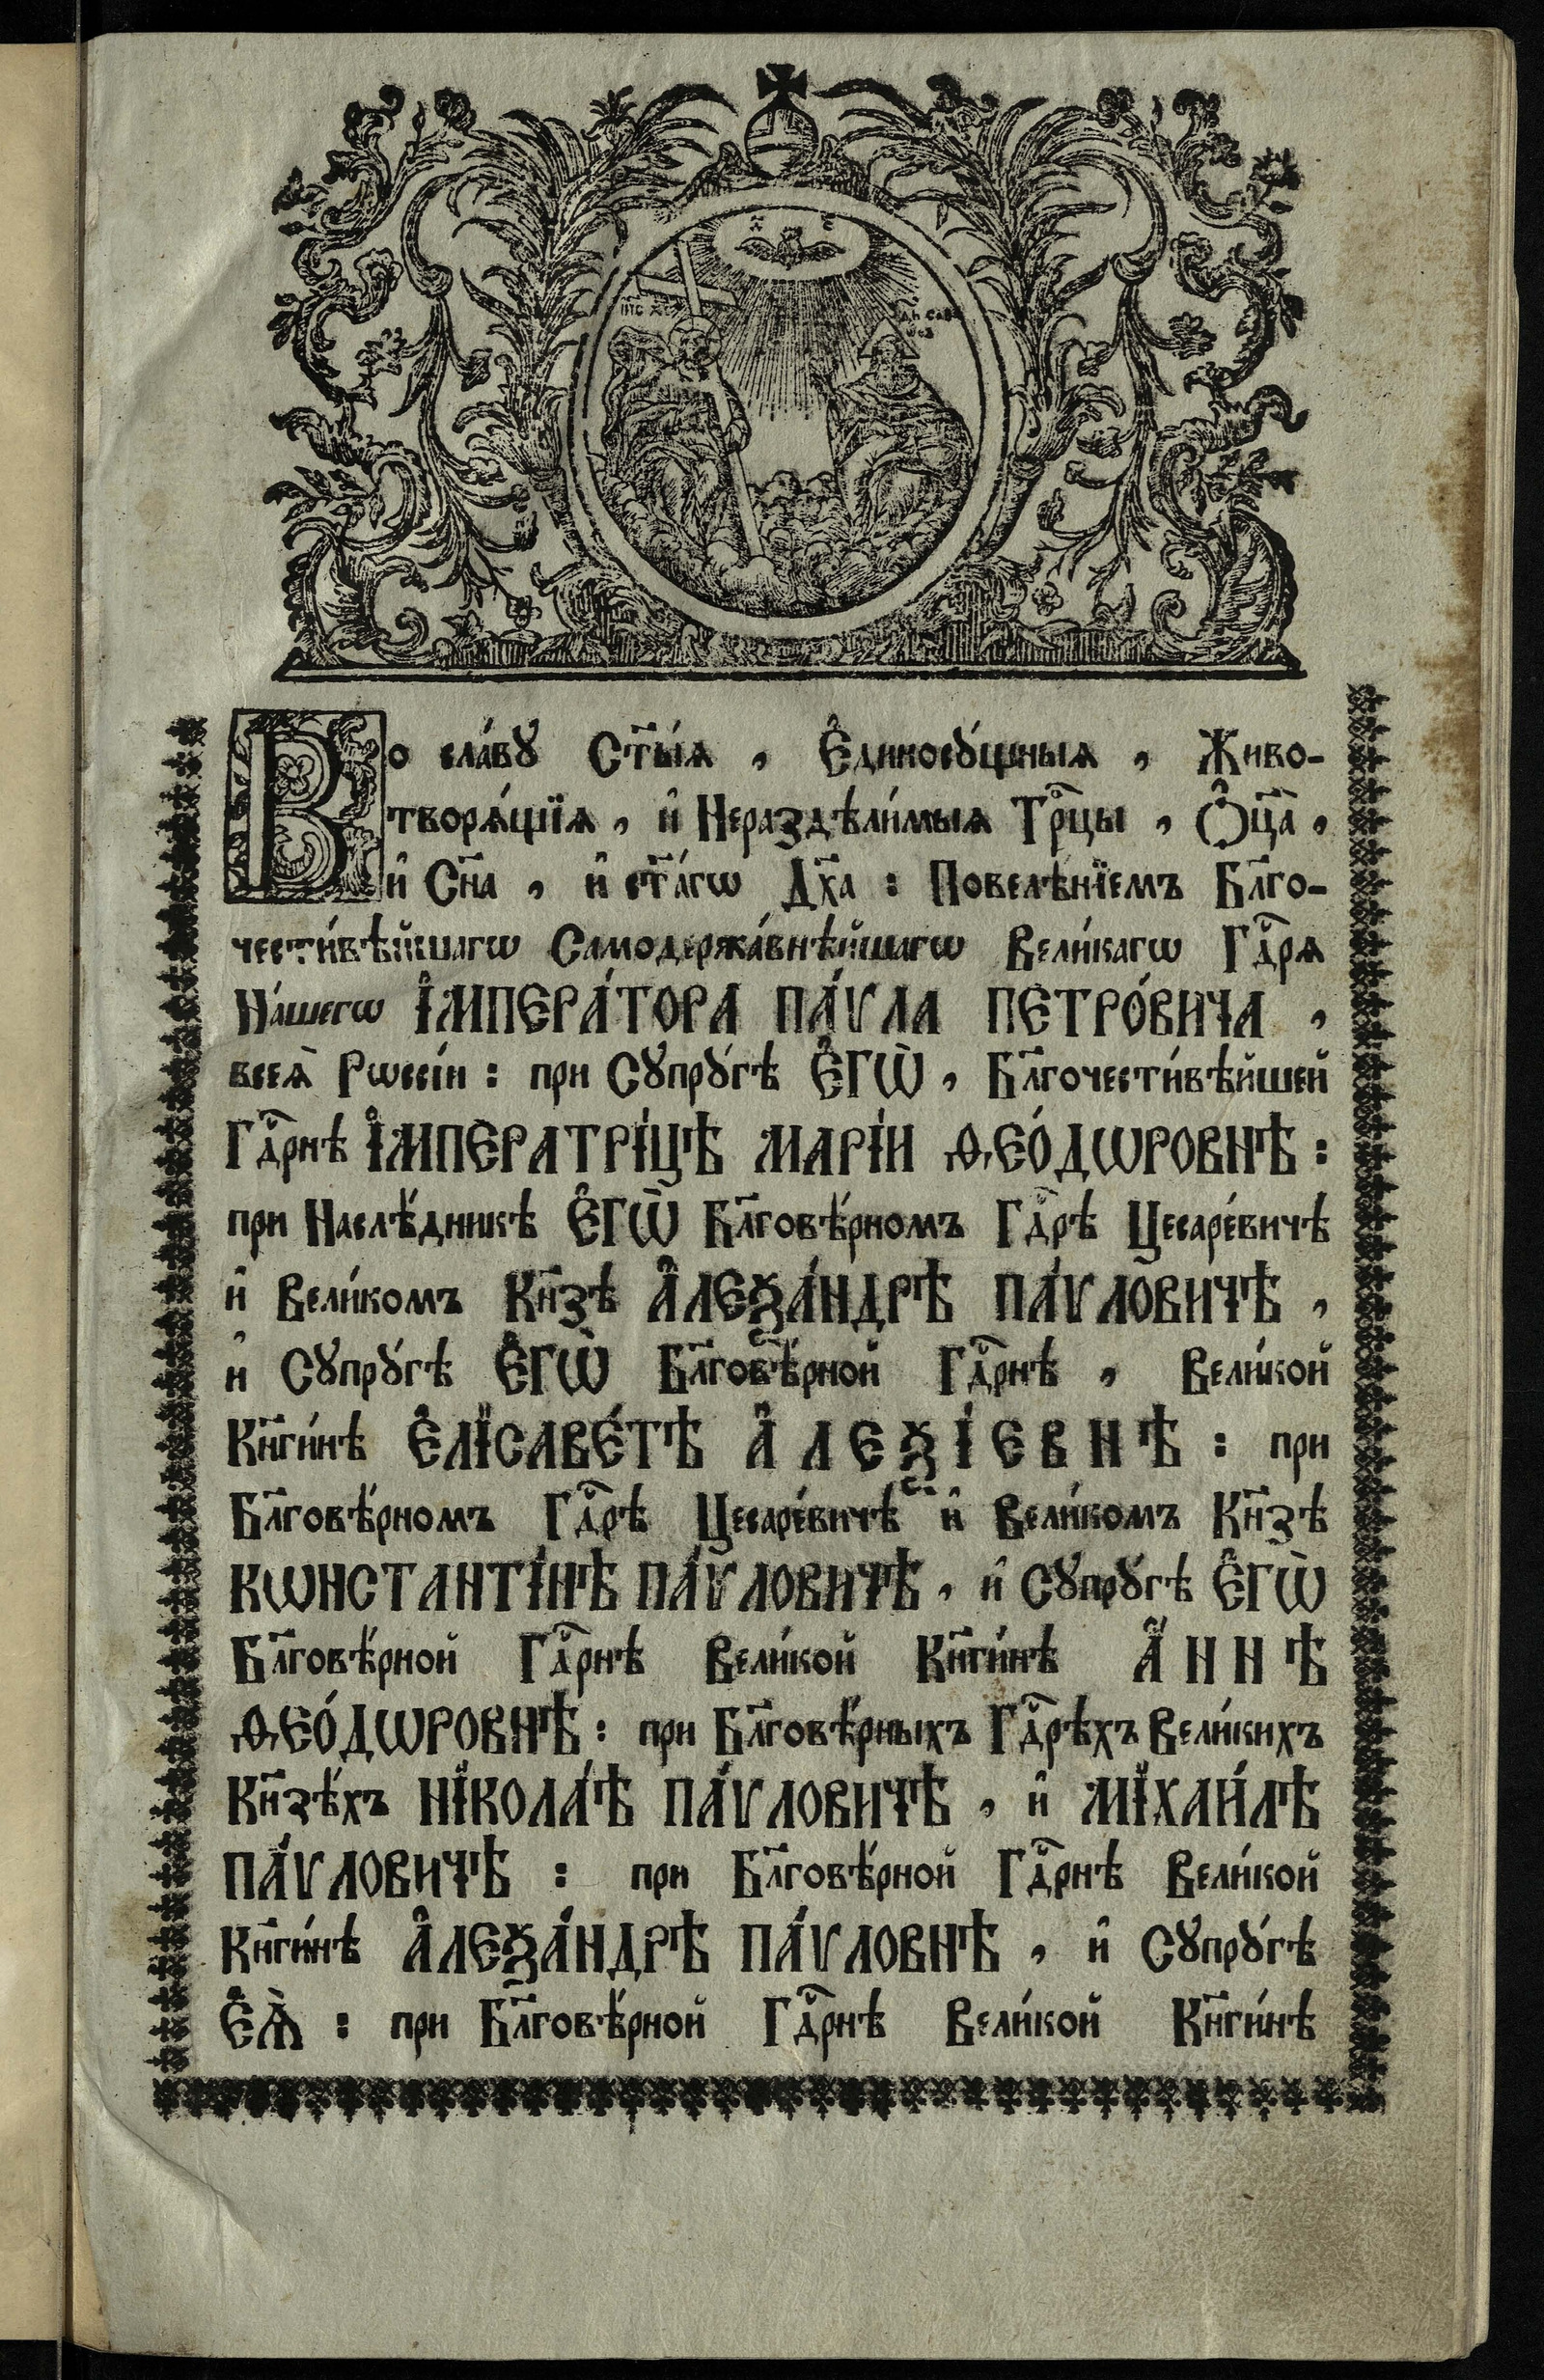 І҃С Х҃С
Во сла́вꙋ Ст҃ы́ѧ , Є҆диносꙋ́щныѧ , Живо-
творѧ́щїѧ , и҆ Нераздѣли́мыѧ Трⷪ҇цы , Ѻ҆ц҃а̀ ,
и҆ Сн҃а , и҆ ст҃а́гѡ Дх҃а : Повелѣ́нїемъ Бл҃го-
чести́вѣйшагѡ Самодержа́внѣйшагѡ Вели́кагѡ Гдⷭ҇рѧ
На́шегѡ І҆МПЕРА́ТОРА ПА́ѴЛА ПЕТРО́ВИЧА ,
всеѧ̀ Рѡссі́и : при Сꙋпрꙋ́гѣ Є҆ГѠ̀ , Бл҃гочести́вѣйшей
Гдⷭ҇рнѣ І҆МПЕРАТРІ́ЦѢ МАРІ́И Ѳ҆ЕО́ДѠРОВНѢ :
при Наслѣ́дникѣ Є҆ГѠ̀ Бл҃говѣ́рномъ Гдⷭ҇рѣ Цесаре́вичѣ
и҆ Вели́комъ Кн҃зѣ А҆ЛЕѮА́НДРѢ ПА́ѴЛОВИЧѢ ,
и҆ Сꙋпрꙋ́гѣ Є҆ГѠ̀ Бл҃говѣ́рной Гдⷭ҇рнѣ , Вели́кой
Кн҃ги́нѣ Є҆ЛІСАВЕ́ТѢ А҆ЛЕѮІ́ЕВНѢ : при
Бл҃говѣ́рномъ Гдⷭ҇рѣ Цесаре́вичѣ и҆ Вели́комъ Кн҃зѣ
КѠНСТАНТІ́НѢ ПА́ѴЛОВИЧѢ , и҆ Сꙋпрꙋ́гѣ Є҆ГѠ̀
Бл҃говѣ́рной Гдⷭ҇рнѣ Вели́кой Кн҃ги́нѣ А҆́ННѢ
Ѳ҆ЕО́ДѠРОВНѢ : при Бл҃говѣ́рныхъ Гдⷭ҇рѣхъ Вели́кихъ
Кн҃зѣ́хъ НІКОЛА́Ѣ ПА́ѴЛОВИЧѢ , и҆ МІХАИ́ЛѢ
ПА́ѴЛОВИЧѢ : при Бл҃говѣ́рной Гдⷭ҇рнѣ Вели́кой
Кн҃ги́нѣ А҆ЛЕѮА́НДРѢ ПА́ѴЛОВНѢ , и҆ Сꙋпрꙋ́гѣ
Є҆Ѧ̀ : при Бл҃говѣ́рной Гдⷭ҇рнѣ Вели́кой Кн҃ги́нѣ